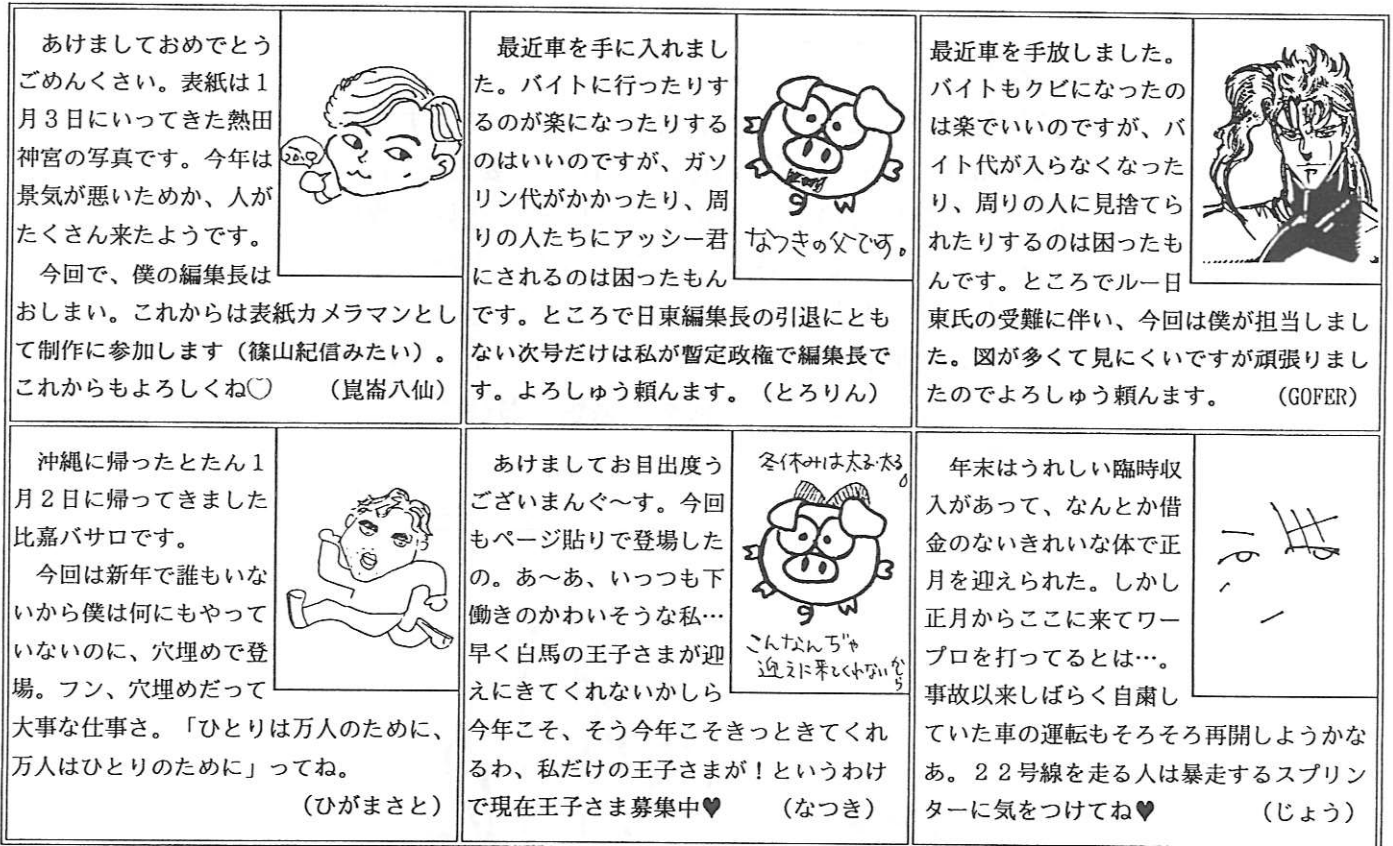 あけましておめでとう
ごめんくさい。表紙は1
月3日にいってきた熱田
神宮の写真です。今年は
景気が悪いためか、人が
たくさん来たようです。
今回で、僕の編集長は
おしまい。これからは表紙カメラマンとし
て制作に参加します（篠山紀信みたい）。
これからもよろしくね♡　（崑崙八仙）
最近車を手に入れまし
た。バイトに行ったりす
るのが楽になったりする
のはいいのですが、ガソ
リン代がかかったり、周
りの人たちにアッシー君
にされるのは困ったもん
です。ところで日東編集長の引退にとも
ない次号だけは私が暫定政権で編集長で
す。よろしゅう頼んます。（とろりん）
なつきの父です。
最近車を手放しました。
バイトもクビになったの
は楽でいいのですが、バ
イト代が入らなくなった
り、周りの人に見捨てら
れたりするのは困ったも
んです。ところでルー日
東氏の受難に伴い、今回は僕が担当しまし
た。図が多くて見にくいですが頑張りまし
たのでよろしゅう頼んます。　（GOFER）
沖縄に帰ったとたん1
月2日に帰ってきました
比嘉バサロです。
今回は新年で誰もいな
いから僕は何にもやって
いないのに、穴埋めで登
場。フン、穴埋めだって
大事な仕事さ。「ひとりは万人のために、
万人はひとりのために」ってね。
（ひがまさと）
あけましてお目出度う
ございまんぐ〜す。今回
もページ貼りで登場した
の。あ〜あ、いっつも下
働きのかわいそうな私…
早く白馬の王子さまが迎
えにきてくれないかしら
今年こそ、そう今年こそきっときてくれ
るわ、私だけの王子さまが！というわけ
で現在王子さま募集中♥　（なつき）
冬休みは太る太る。
こんなんぢゃ
迎えに来てくれないかしら
年末はうれしい臨時収
入があって、なんとか借
金のないきれいな体で正
月を迎えられた。しかし
正月からここに来てワー
プロを打ってるとは…。
事故以来しばらく自粛し
ていた車の運転もそろそろ再開しようかな
あ。22号線を走る人は暴走するスプリン
ターに気をつけてね♥　（じょう）